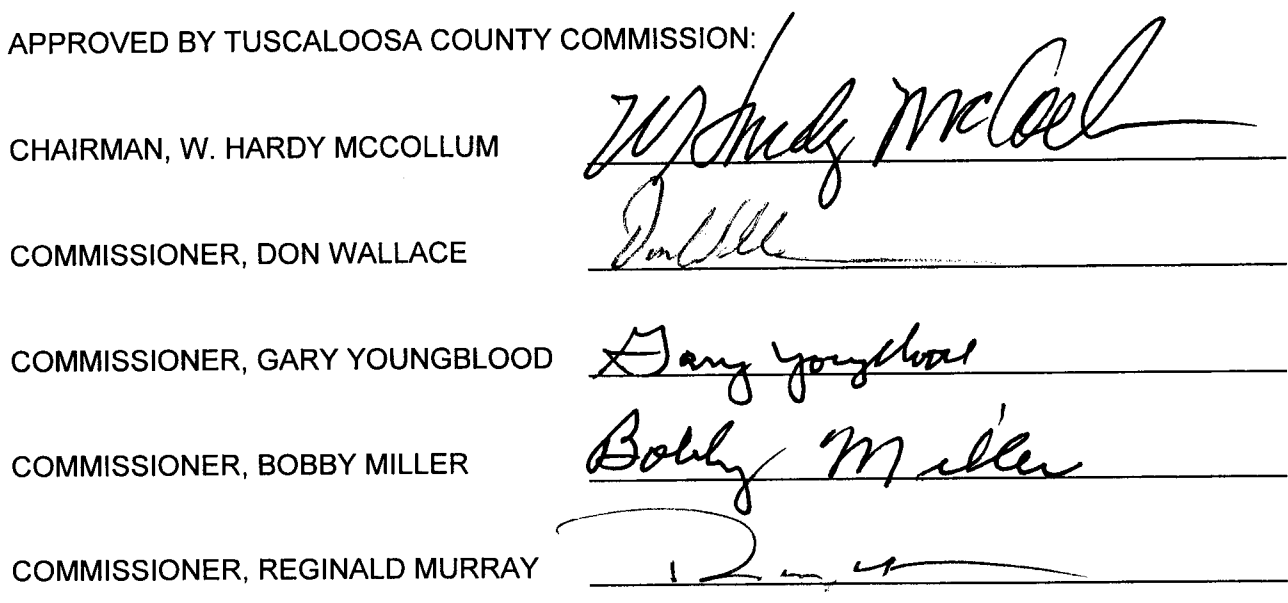 APPROVED BY TUSCALOOSA COUNTY COMMISSION:
CHAIRMAN, W. HARDY MCCOLLUM W Hardy McCol
COMMISSIONER, DON WALLACE Don
COMMISSIONER, GARY YOUNGBLOOD Gary Youngblood
COMMISSIONER, BOBBY MILLER Bobby Miller
COMMISSIONER, REGINALD MURRAY